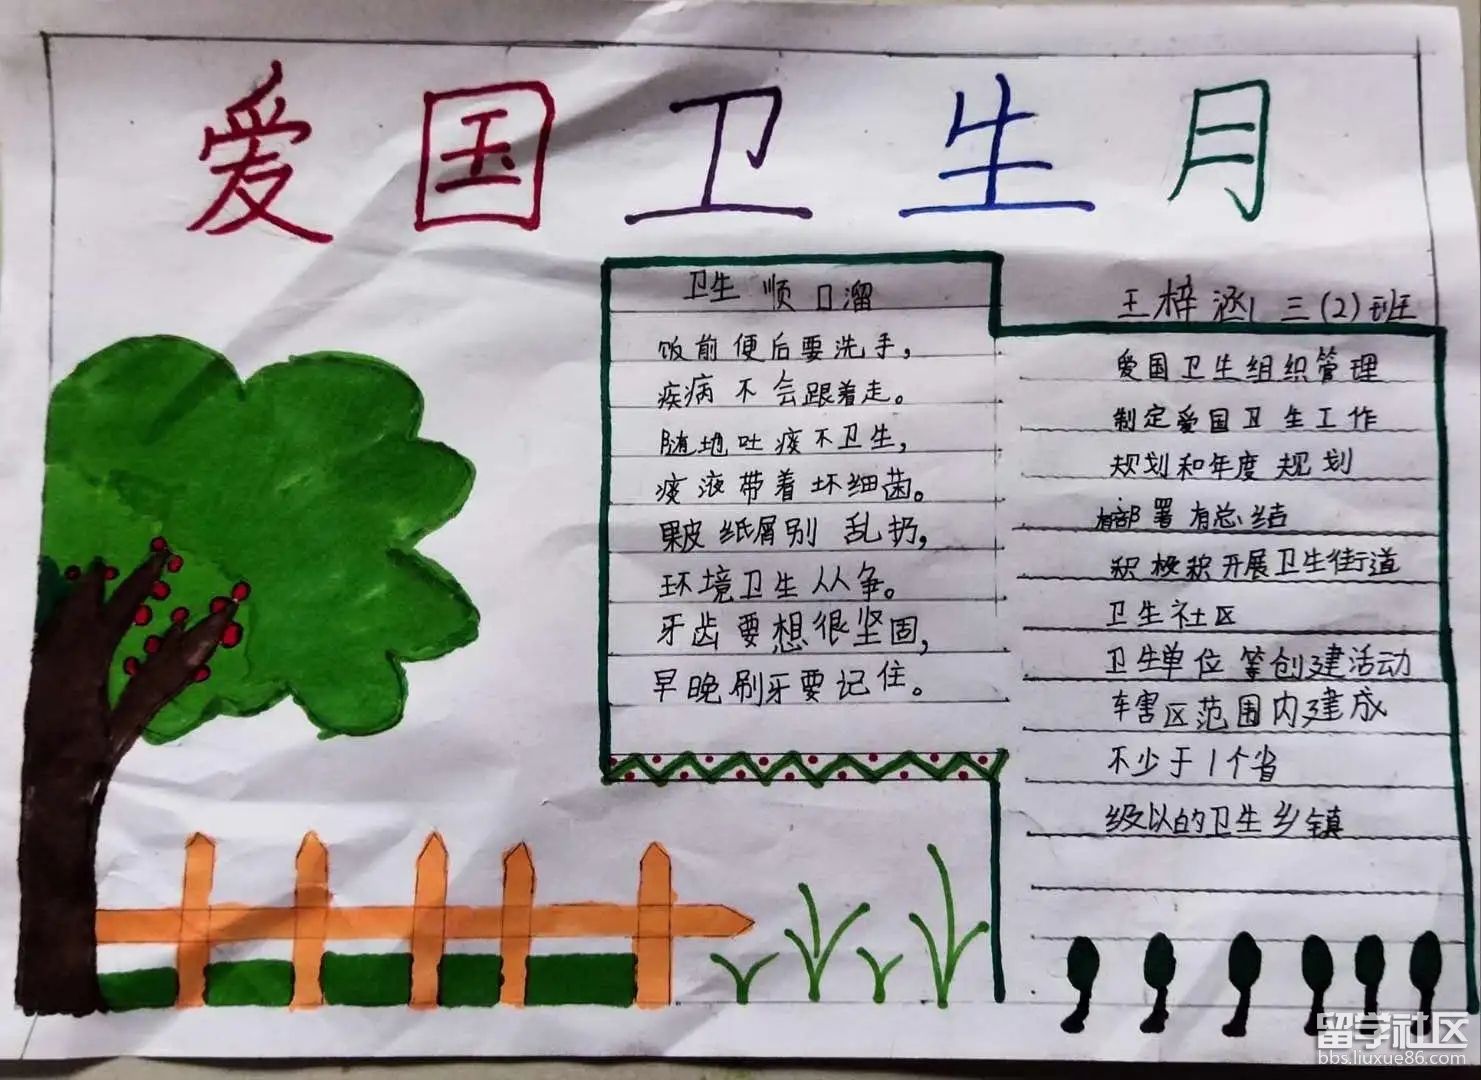 爱国卫生月
卫生顺口溜
饭前便后要洗手，
疾病不会跟着走。
随地吐痰不卫生，
痰液带着坏细菌。
果皮纸屑别乱扔，
环境卫生人人争。
牙齿要想很坚固，
早晚刷牙要记住。
王梓涵 三(2)班
爱国卫生组织管理
制定爱国卫生工作
规划和年度规划
有部署有总结
积极积开展卫生街道
卫生社区
卫生单位等创建活动
车害区范围内建成
不少于1个省
级以的卫生乡镇
留学社区
bbs.liuxue86.com